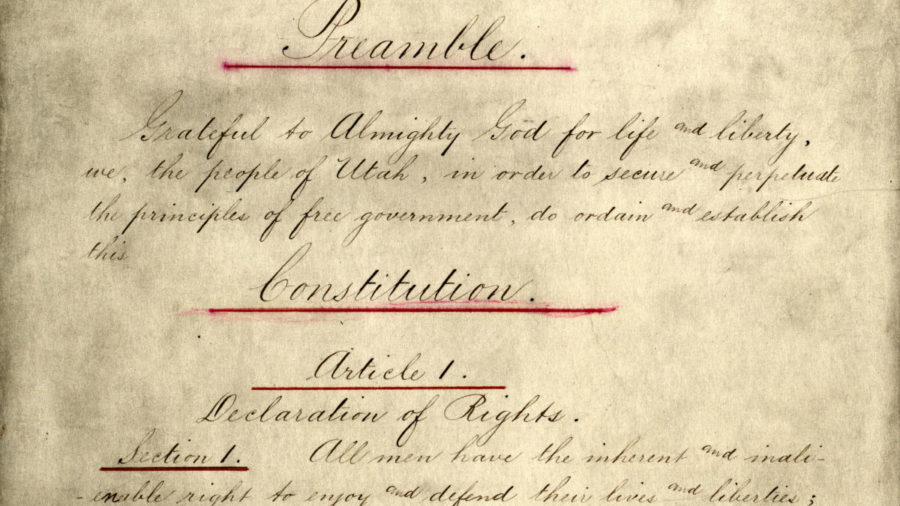 Preamble.
Grateful to Almighty God for life and liberty,
we, the people of Utah, in order to secure and perpetuate
the principles of free government, do ordain and establish
this
Constitution.
Article 1.
Declaration of Rights.
Section 1. All men have the inherent and inali-
-enable right to enjoy and defend their lives and liberties;